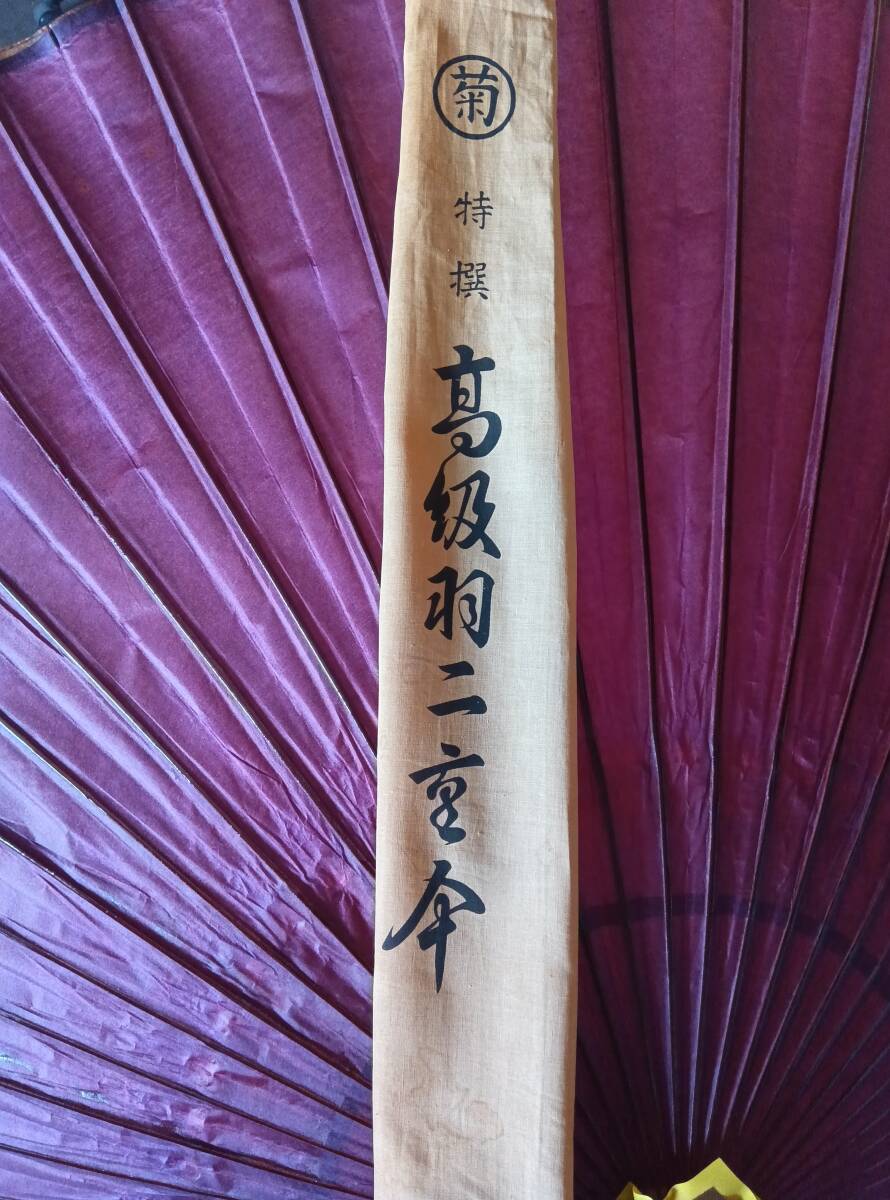 菊
特撰
高級羽二重傘